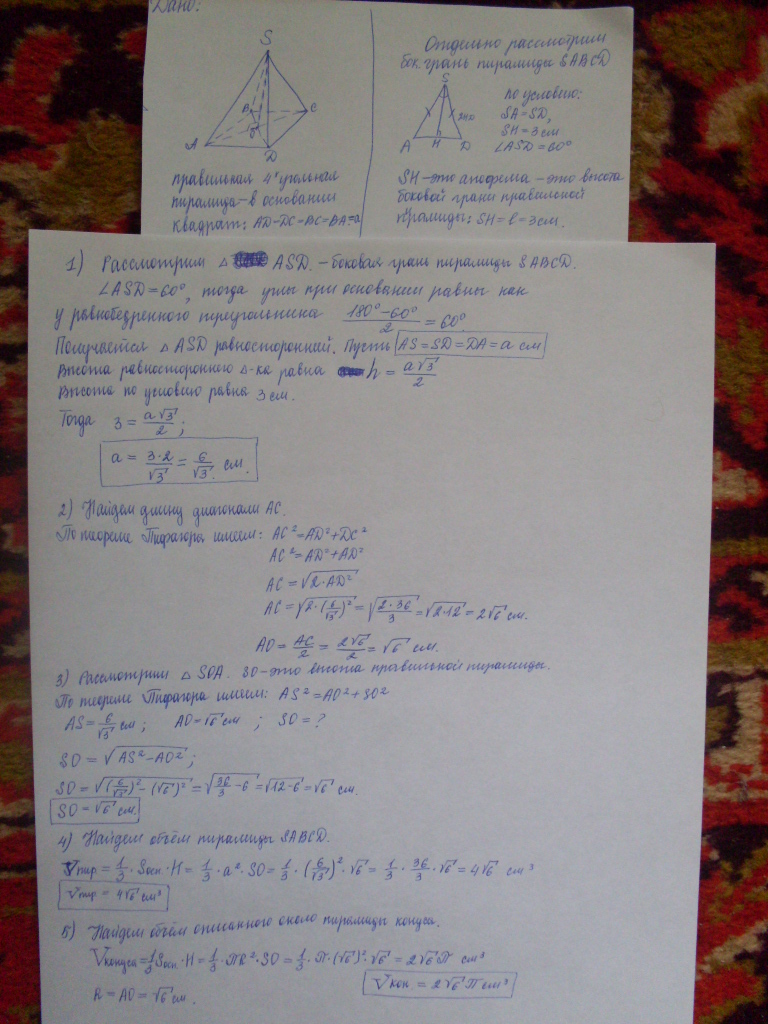 Дано:
S
B
C
A
O
D
правильная 4ˣугольная
пирамида – в основании
квадрат: AD=DC=BC=BA=a
Отдельно рассмотрим
бок. грань пирамиды SABCD
S
A
H
D
по условию:
SA=SD,
SH=3 см
∠ASD=60°
SH – это апофема – это высота
боковой грани правильной
пирамиды: SH=l=3см.
1) Рассмотрим △ ASD. – боковая грань пирамиды SABCD.
∠ASD=60°, тогда углы при основании равны как
у равнобедренного треугольника (180°−60°)/2 = 60°.
Получается △ ASD равносторонний. Пусть AS=SD=DA=a см
Высота равностороннего △-ка равна h = a√3/2
Высота по условию равна 3 см.
Тогда 3 = a√3/2;
a = 3·2/√3 = 6/√3 см.
2) Найдем длину диагонали AC.
По теореме Пифагора имеем: AC²=AD²+DC²
AC²=AD²+AD²
AC=√(2·AD²)
AC=√(2·(6/√3)²)=√(2·36/3)=√(2·12)=2√6 см.
AO=AC/2=2√6/2=√6 см.
3) Рассмотрим △ SOA. SO – это высота правильной пирамиды.
По теореме Пифагора имеем: AS²=AO²+SO²
AS=6/√3 см; AO=√6 см; SO=?
SO=√(AS²−AO²);
SO=√((6/√3)²−(√6)²)=√(36/3−6)=√(12−6)=√6 см.
SO=√6 см.
4) Найдем объём пирамиды SABCD.
Vпир=1/3·Sосн·H=1/3·a²·SO=1/3·(6/√3)²·√6=1/3·36/3·√6=4√6 см³
Vпир=4√6 см³
5) Найдем объём описанного около пирамиды конуса.
Vконуса=1/3Sосн·H=1/3·ПR²·SO=1/3·П·(√6)²·√6=2√6П см³
R=AO=√6 см.
Vкон=2√6П см³